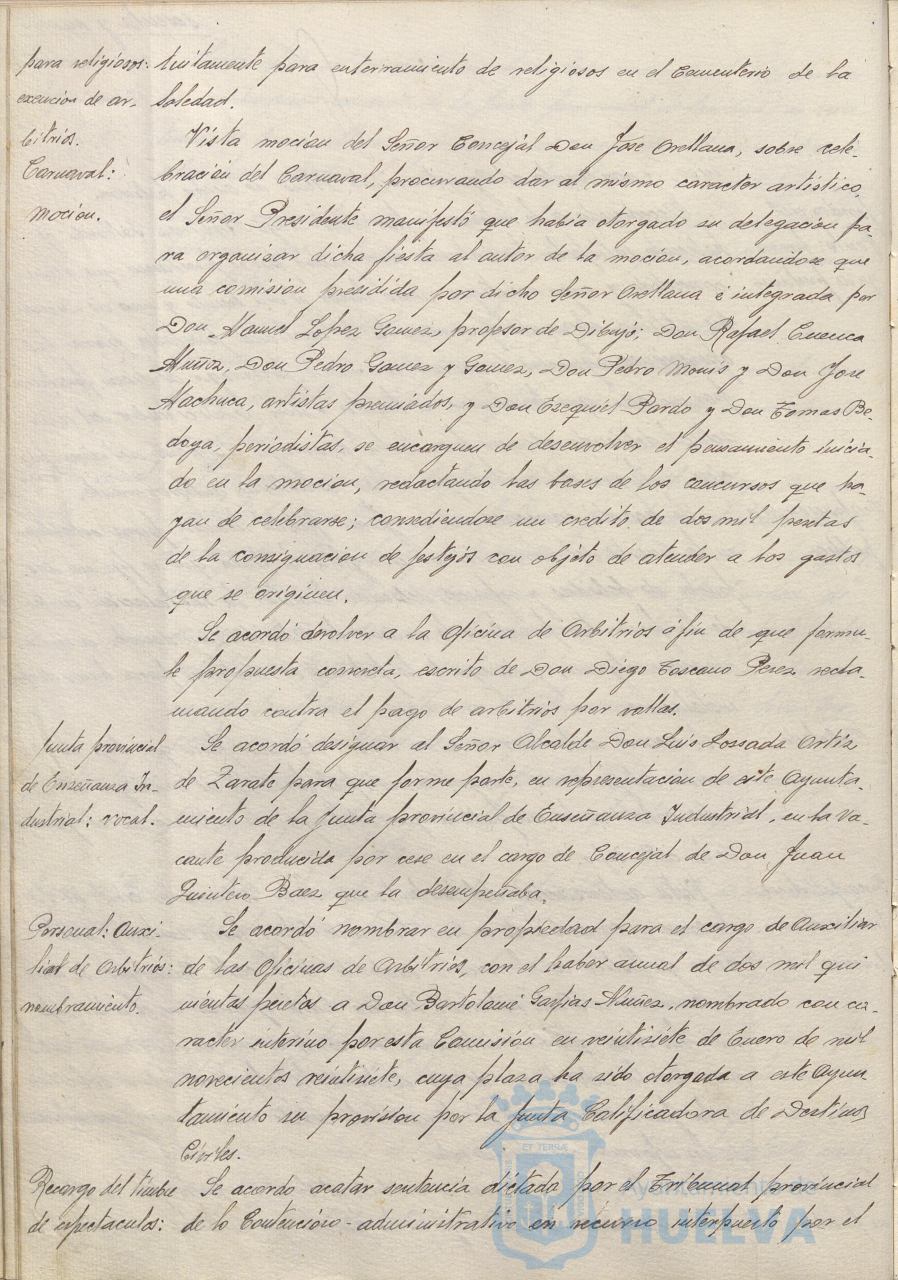 para religiosos: tuitamente para enterramiento de religiosos en el Cementerio de la
exención de ar- Soledad.
bitrios.
Vista mocion del Señor Concejal Don Jose Orellana, sobre cele-
Carnaval: bración del Carnaval, procurando dar al mismo caracter artistico,
mocion. el Señor Presidente manifestó que habia otorgado su delegacion pa-
ra organizar dicha fiesta al autor de la mocion, acordandose que
una comision presidida por dicho Señor Orellana é integrada por
Don Manuel Lopez Gomez, profesor de Dibujo; Don Rafael Cuenca
Muñoz, Don Pedro Gomez y Gomez, Don Pedro Monis y Don Jose
Machuca, artistas premiados, y Don Ezequiel Pardo y Don Tomas Be-
doya, periodistas, se encarguen de desenvolver el pensamiento inicia-
do en la mocion, redactando las bases de los concursos que ha-
yan de celebrarse; consediendose un credito de dos mil pesetas
de la consignacion de festejos con objeto de atender a los gastos
que se originen.
Se acordó devolver a la Oficina de Arbitrios á fin de que formu-
le propuesta concreta, escrito de Don Diego Toscano Perez recla-
mando contra el pago de arbitrios por vallas.
Junta provincial Se acordó designar al Señor Alcalde Don Luis Lossada Ortiz
de Enseñanza In- de Zarate para que forme parte, en representacion de este Ayunta-
dustrial: vocal. miento de la Junta provincial de Enseñanza Industrial, en la va-
cante producida por cese en el cargo de Concejal de Don Juan
Quintero Baez que la desempeñaba.
Personal: Auxi- Se acordó nombrar en propiedad para el cargo de Auxiliar
liar de Arbitrios: de las Oficinas de Arbitrios, con el haber anual de dos mil qui
nombramiento. nientas pesetas a Don Bartolomé Garfias Nuñez, nombrado con ca-
racter interino por esta Comisión en veintisiete de Enero de mil
novecientos veintisiete, cuya plaza ha sido otorgada a este Ayun
tamiento su provision por la Junta Calificadora de Destinos
Civiles.
Recargo del timbre Se acordo acatar sentencia dictada por el Tribunal provincial
de espectaculos: de lo Contencioso-administrativo en recurso interpuesto por el
ET TERRÆ
Ayuntamiento de
HUELVA